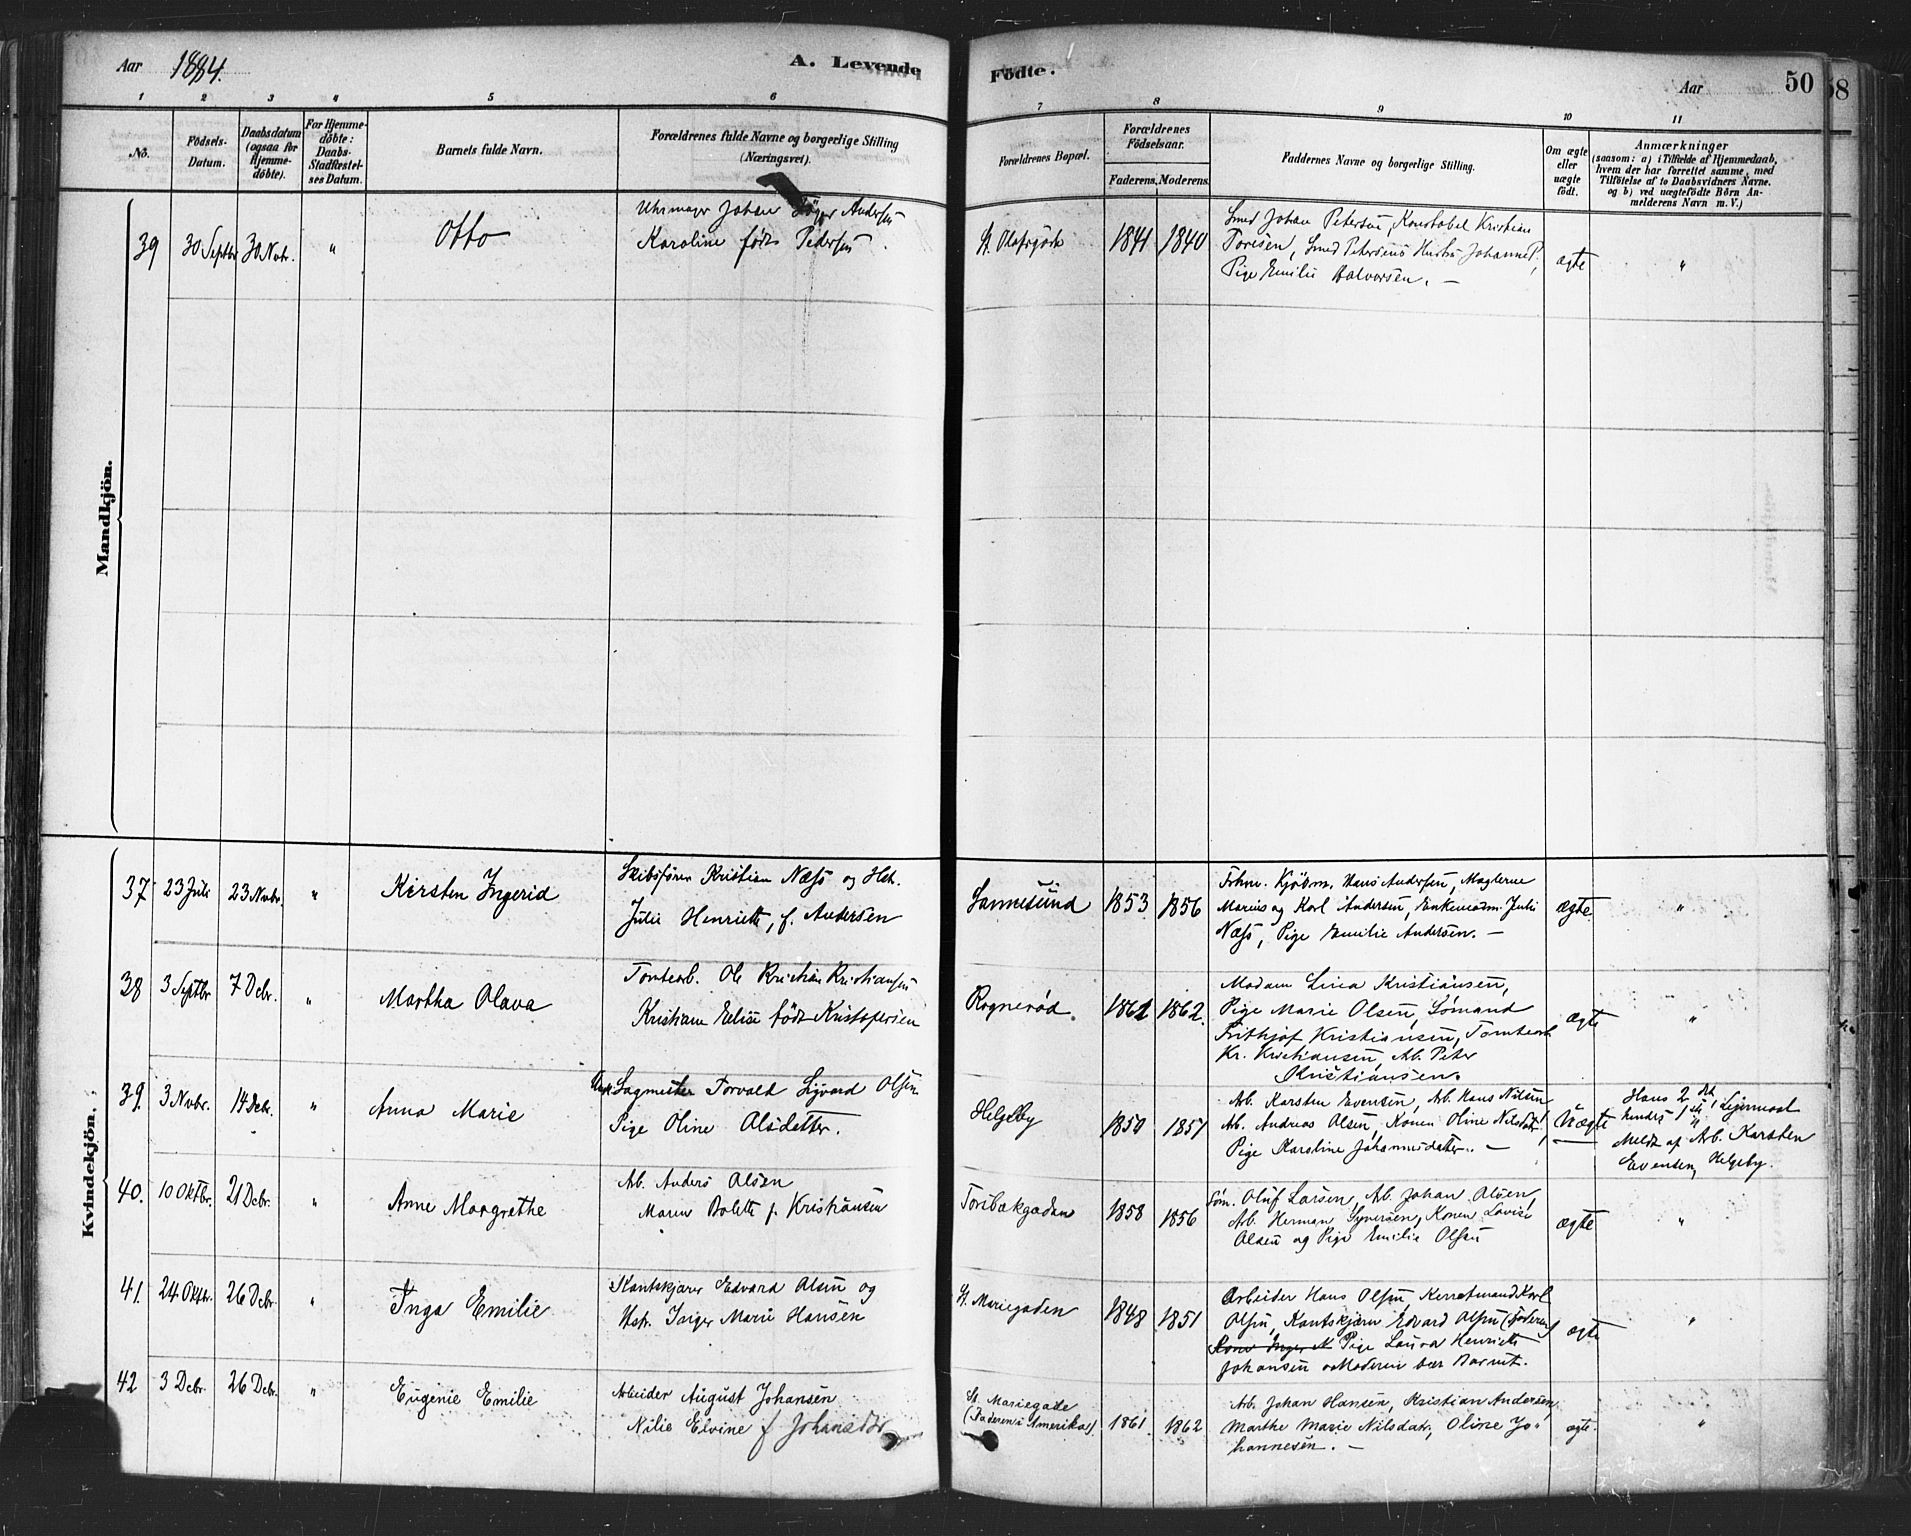 Aar 1884.
A. Levende
Födte.
Aar
50
58
1 2 3 4 5 6 7 8 9 10 11
No.
Födsels-
Datum.
Daabsdatum
(ogsaa for
Hjemme-
döbte).
For Hjemme-
döbte:
Daabs-
Stadfæstel-
ses Datum.
Barnets fulde Navn.
Forældrenes fulde Navne og borgerlige Stilling
(Næringsvei).
Forældrenes Bopæl.
Forældrenes
Födselsaar.
Faderens. Moderens.
Faddernes Navne og borgerlige Stilling.
Om ægte
eller
uægte
födt.
Anmærkninger
(saasom: a) i Tilfælde af Hjemmedaab,
hvem der har forrettet samme, med
Tilföielse af to Daabsvidners Navne.
og b) ved uægtefödte Börn An-
melderens Navn m. V.)
Mandkjön.
39 30 Septbr 30 Nvbr. " Otto
Uhrmager Johan Andersen
Karoline født Pedersen
St. Olafsgade 1841 1840
Smed Johan Petersen, Konstabel Kristian
Toresen, Smed Petersens Hustru Johanne P.,
Pige Emilie Halvorsen. —
ægte "
Kvindekjön.
37 23 Juli 23 Nvbr. " Kirsten Ingerid
Skibsfører Kristian Næss og Hst.
Julie Henriette, f. Andersen
Sannesund 1853 1856
Fhv. Kjøbm. Hans Andersen, Maglerne
Marius og Karl Andersen, Enkemadm. Juli
Næss, Pige Emilie Andersen. —
ægte "
38 3 Septbr 7 Debr. " Martha Olava
Tomtearb. Ole Kristian Kristiansen
Kristiane Elise født Kristofersen
Rognerød. 1861 1862.
Madam Lina Kristiansen,
Pige Marie Olsen, Sømand
Frithjof Kristiansen, Tomtearb.
Kr. Kristiansen, Ab. Peter
Kristiansen.
ægte "
39. 3 Nvbr. 14 Debr. " Anna Marie
Sagmester Torvald Sigvard Olsen
Pige Oline Olsdatter.
Helgeby 1850 1851
Ab. Karsten Evensen, Ab. Hans Nilsen
Ab. Andreas Olsen, Konen Oline Nilsdatr,
Pige Karoline Johannesdatter. —
Uægte
Hans 2det,
hendes 1ste Leiermaal
Meldt af Ab. Karsten
Evensen, Helgeby.
40. 10 Oktbr. 21 Debr. " Anne Margrethe
Ab. Anders Olsen
Maren Bolette f. Kristiansen
Torsbækgaden 1858 1856
Søm. Oluf Larsen, Ab. Johan Olsen,
Arb. Herman Syversen, Konen Lovise
Olsen og Pige Emilie Olsen
ægte "
41. 24 Oktbr. 26 Debr. " Inga Emilie
Kantskjærer Edvard Olsen og
Hstr. Inger Marie Hansen
St. Mariegaden 1848 1851
Arbeider Hans Olsen, Karl
Olsen, Kantskjærer Edvard Olsen (Faderen)
Kone Inger M Pige Laura Henriette
Johansen Moderen bar Barnet.
ægte "
42 3 Debr. 26 Debr. " Eugenie Emilie
Arbeider August Johansen
Nilie Elvine f Johansdtr
St. Mariegade
(Faderen i Amerika). 1861 1862
Arb. Johan Hansen, Kristian Andersen,
Marthe Marie Nilsdatr, Oline Jo-
hannesen. —
ægte. "